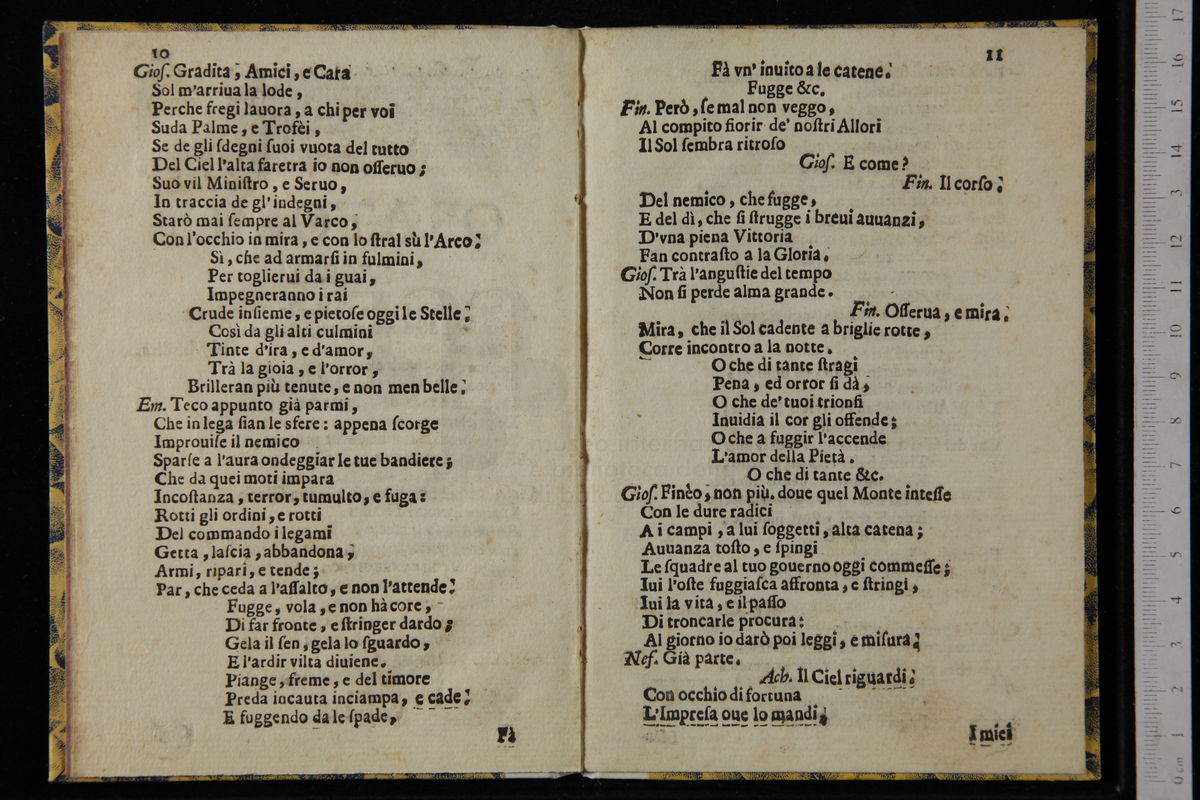 10
Gioſ. Gradita, Amici, e Cara
Sol m'arriua la lode,
Perche fregi lauora, a chi per voi
Suda Palme, e Trofèi,
Se de gli ſdegni ſuoi vuota del tutto
Del Ciel l'alta faretra io non oſſeruo;
Suo vil Miniſtro, e Seruo,
In traccia de gl'indegni,
Starò mai ſempre al Varco,
Con l'occhio in mira, e con lo ſtral sù l'Arco.
Sì, che ad armarſi in fulmini,
Per toglierui da i guai,
Impegneranno i rai
Crude inſieme, e pietoſe oggi le Stelle.
Così da gli alti culmini
Tinte d'ira, e d'amor,
Trà la gioia, e l'orror,
Brilleran più tenute, e non men belle.
Em. Teco appunto già parmi,
Che in lega ſian le sfere: appena ſcorge
Improuiſe il nemico
Sparſe a l'aura ondeggiar le tue bandiere;
Che da quei moti impara
Incoſtanza, terror, tumulto, e fuga:
Rotti gli ordini, e rotti
Del commando i legami
Getta, laſcia, abbandona,
Armi, ripari, e tende;
Par, che ceda a l'aſſalto, e non l'attende.
Fugge, vola, e non hà core,
Di far fronte, e ſtringer dardo;
Gela il ſen, gela lo ſguardo,
E l'ardir vilta diuiene.
Piange, freme, e del timore
Preda incauta inciampa, e cade.
E fuggendo da le ſpade,
Fà
11
Fà vn' inuito a le catene.
Fugge &c.
Fin. Però, ſe mal non veggo,
Al compito fiorir de' noſtri Allori
Il Sol ſembra ritroſo
Gioſ. E come?
Fin. Il corſo.
Del nemico, che fugge,
E del dì, che ſi ſtrugge i breui auuanzi,
D'vna piena Vittoria
Fan contraſto a la Gloria.
Gioſ. Trà l'anguſtie del tempo
Non ſi perde alma grande.
Fin. Oſſerua, e mira.
Mira, che il Sol cadente a briglie rotte,
Corre incontro a la notte.
O che di tante ſtragi
Pena, ed orror ſi dà,
O che de' tuoi trionfi
Inuidia il cor gli offende;
O che a fuggir l'accende
L'amor della Pietà.
O che di tante &c.
Gioſ. Finèo, non più. doue quel Monte inteſſe
Con le dure radici
A i campi, a lui ſoggetti, alta catena;
Auuanza toſto, e ſpingi
Le ſquadre al tuo gouerno oggi commeſſe;
Iui l'oſte fuggiaſca affronta, e ſtringi,
Iui la vita, e il paſſo
Di troncarle procura:
Al giorno io darò poi leggi, e miſura.
Neſ. Già parte.
Acb. Il Ciel riguardi.
Con occhio di fortuna
L'Impreſa oue lo mandi.
I miei